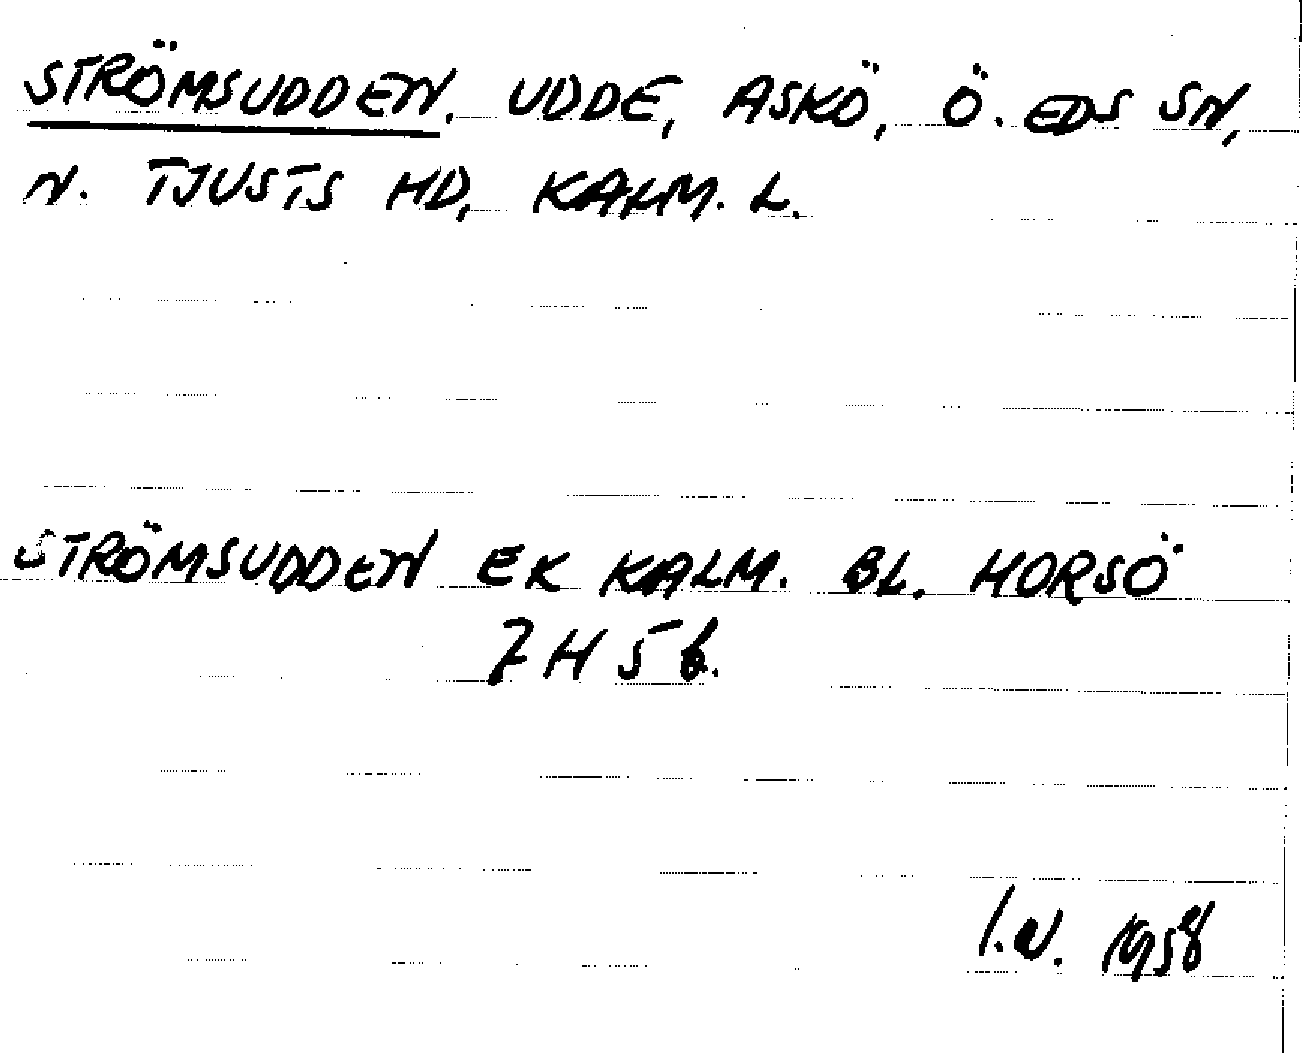 STRÖMSUDDEN. UDDE, ASKÖ, Ö. EDS SN,
N. TJUSTS HD, KALM. L.
STRÖMSUDDEN EK KALM. BL. HORSÖ
7 H 5 b.
I.N. 1958